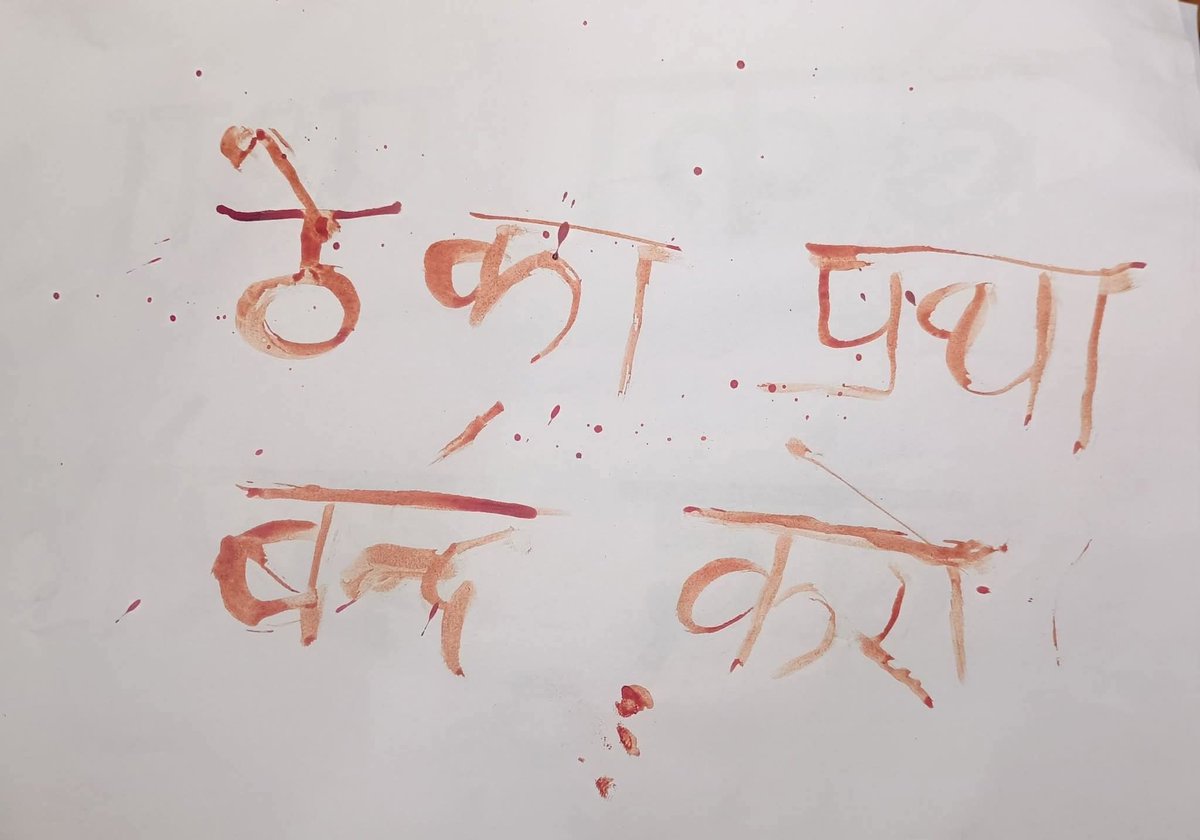 ठेका प्रथा
बन्द करो।